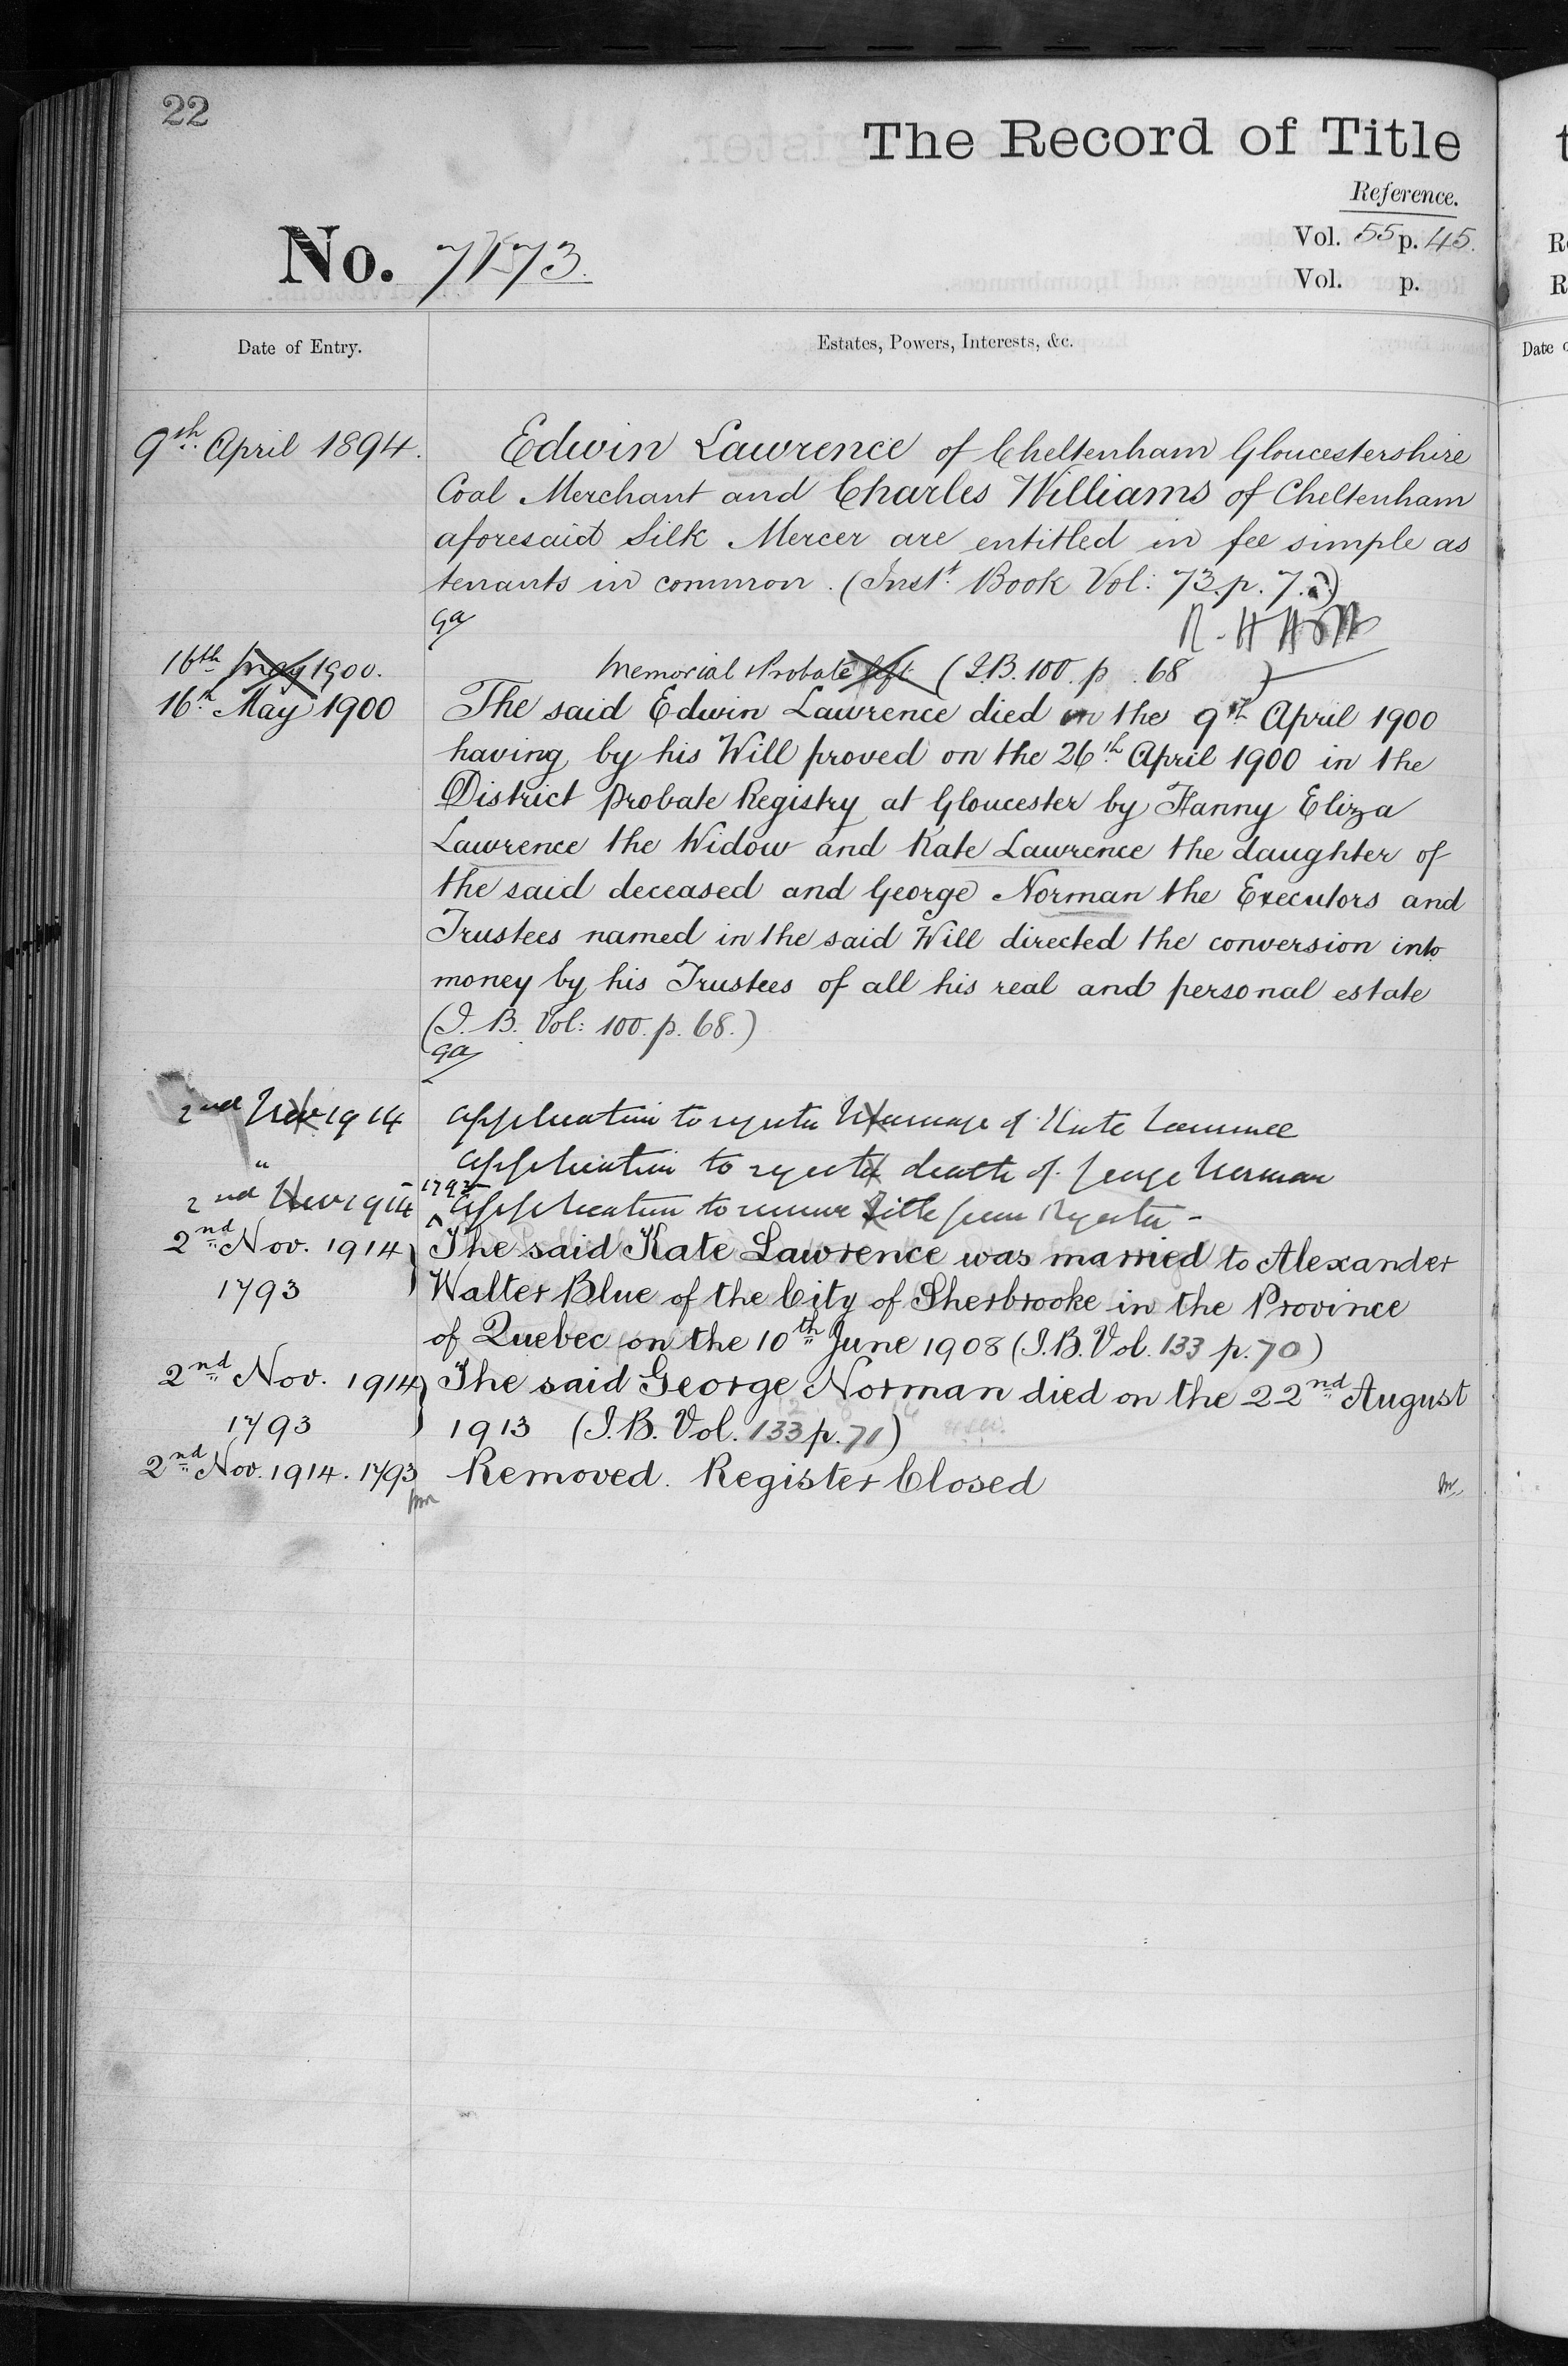 22
The Record of Title
Reference.
No. 7173.
Vol. 55 p. 45.
Vol. p.
Date of Entry.
Estates, Powers, Interests, &c.
9th April 1894.
Edwin Lawrence of Cheltenham Gloucestershire
Coal Merchant and Charles Williams of Cheltenham
aforesaid Silk Mercer are entitled in fee simple as
tenants in common. (Inst. Book Vol: 73. p. 7.)
ga
16th May 1900. Memorial & Probate left (I.B. 100. p. 68 )
16th May 1900 The said Edwin Lawrence died on the 9th April 1900
having by his Will proved on the 26th April 1900 in the
District Probate Registry at Gloucester by Fanny Eliza
Lawrence the Widow and Kate Lawrence the daughter of
the said deceased and George Norman the Executors and
Trustees named in the said Will directed the conversion into
money by his Trustees of all his real and personal estate
(I. B. Vol: 100. p. 68.)
ga
2nd Nov 1914 Application to register Marriage of Kate Lawrence
" Application to register death of George Norman
1793
2nd Nov 1914 Application to remove Title from Register -
2nd Nov. 1914 The said Kate Lawrence was married to Alexander
1793 Walter Blue of the City of Sherbrooke in the Province
of Quebec on the 10th June 1908 (I.B. Vol. 133 p. 70)
2nd Nov. 1914 The said George Norman died on the 22nd August
1793 1913 (I.B. Vol. 133 p. 71)
2nd Nov. 1914. 1793 Removed. Register Closed
t
R
R
Date